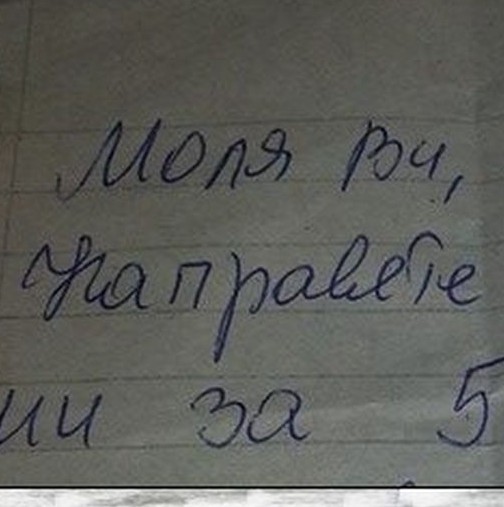 Моля Ви,
направете
ми за 5